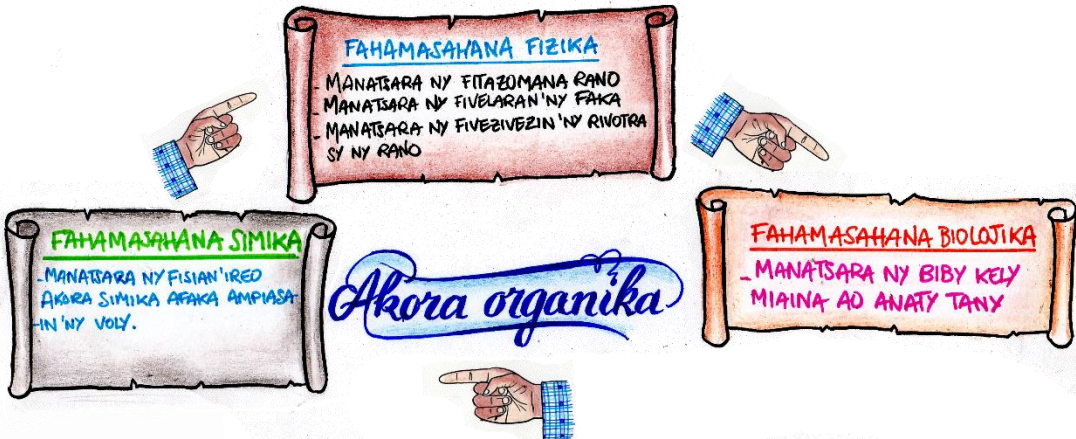 FAHAMASAHANA FIZIKA
- MANATSARA NY FITAZOMANA RANO
- MANATSARA NY FIVELARAN'NY FAKA
- MANATSARA NY FIVEZIVEZIN'NY RIVOTRA
SY NY RANO
FAHAMASAHANA SIMIKA
- MANATSARA NY FISIAN'IREO
AKORA SIMIKA AFAKA AMPIASA-
IN'NY VOLY.
Akora organika
FAHAMASAHANA BIOLOJIKA
- MANATSARA NY BIBY KELY
MIAINA AO ANATY TANY